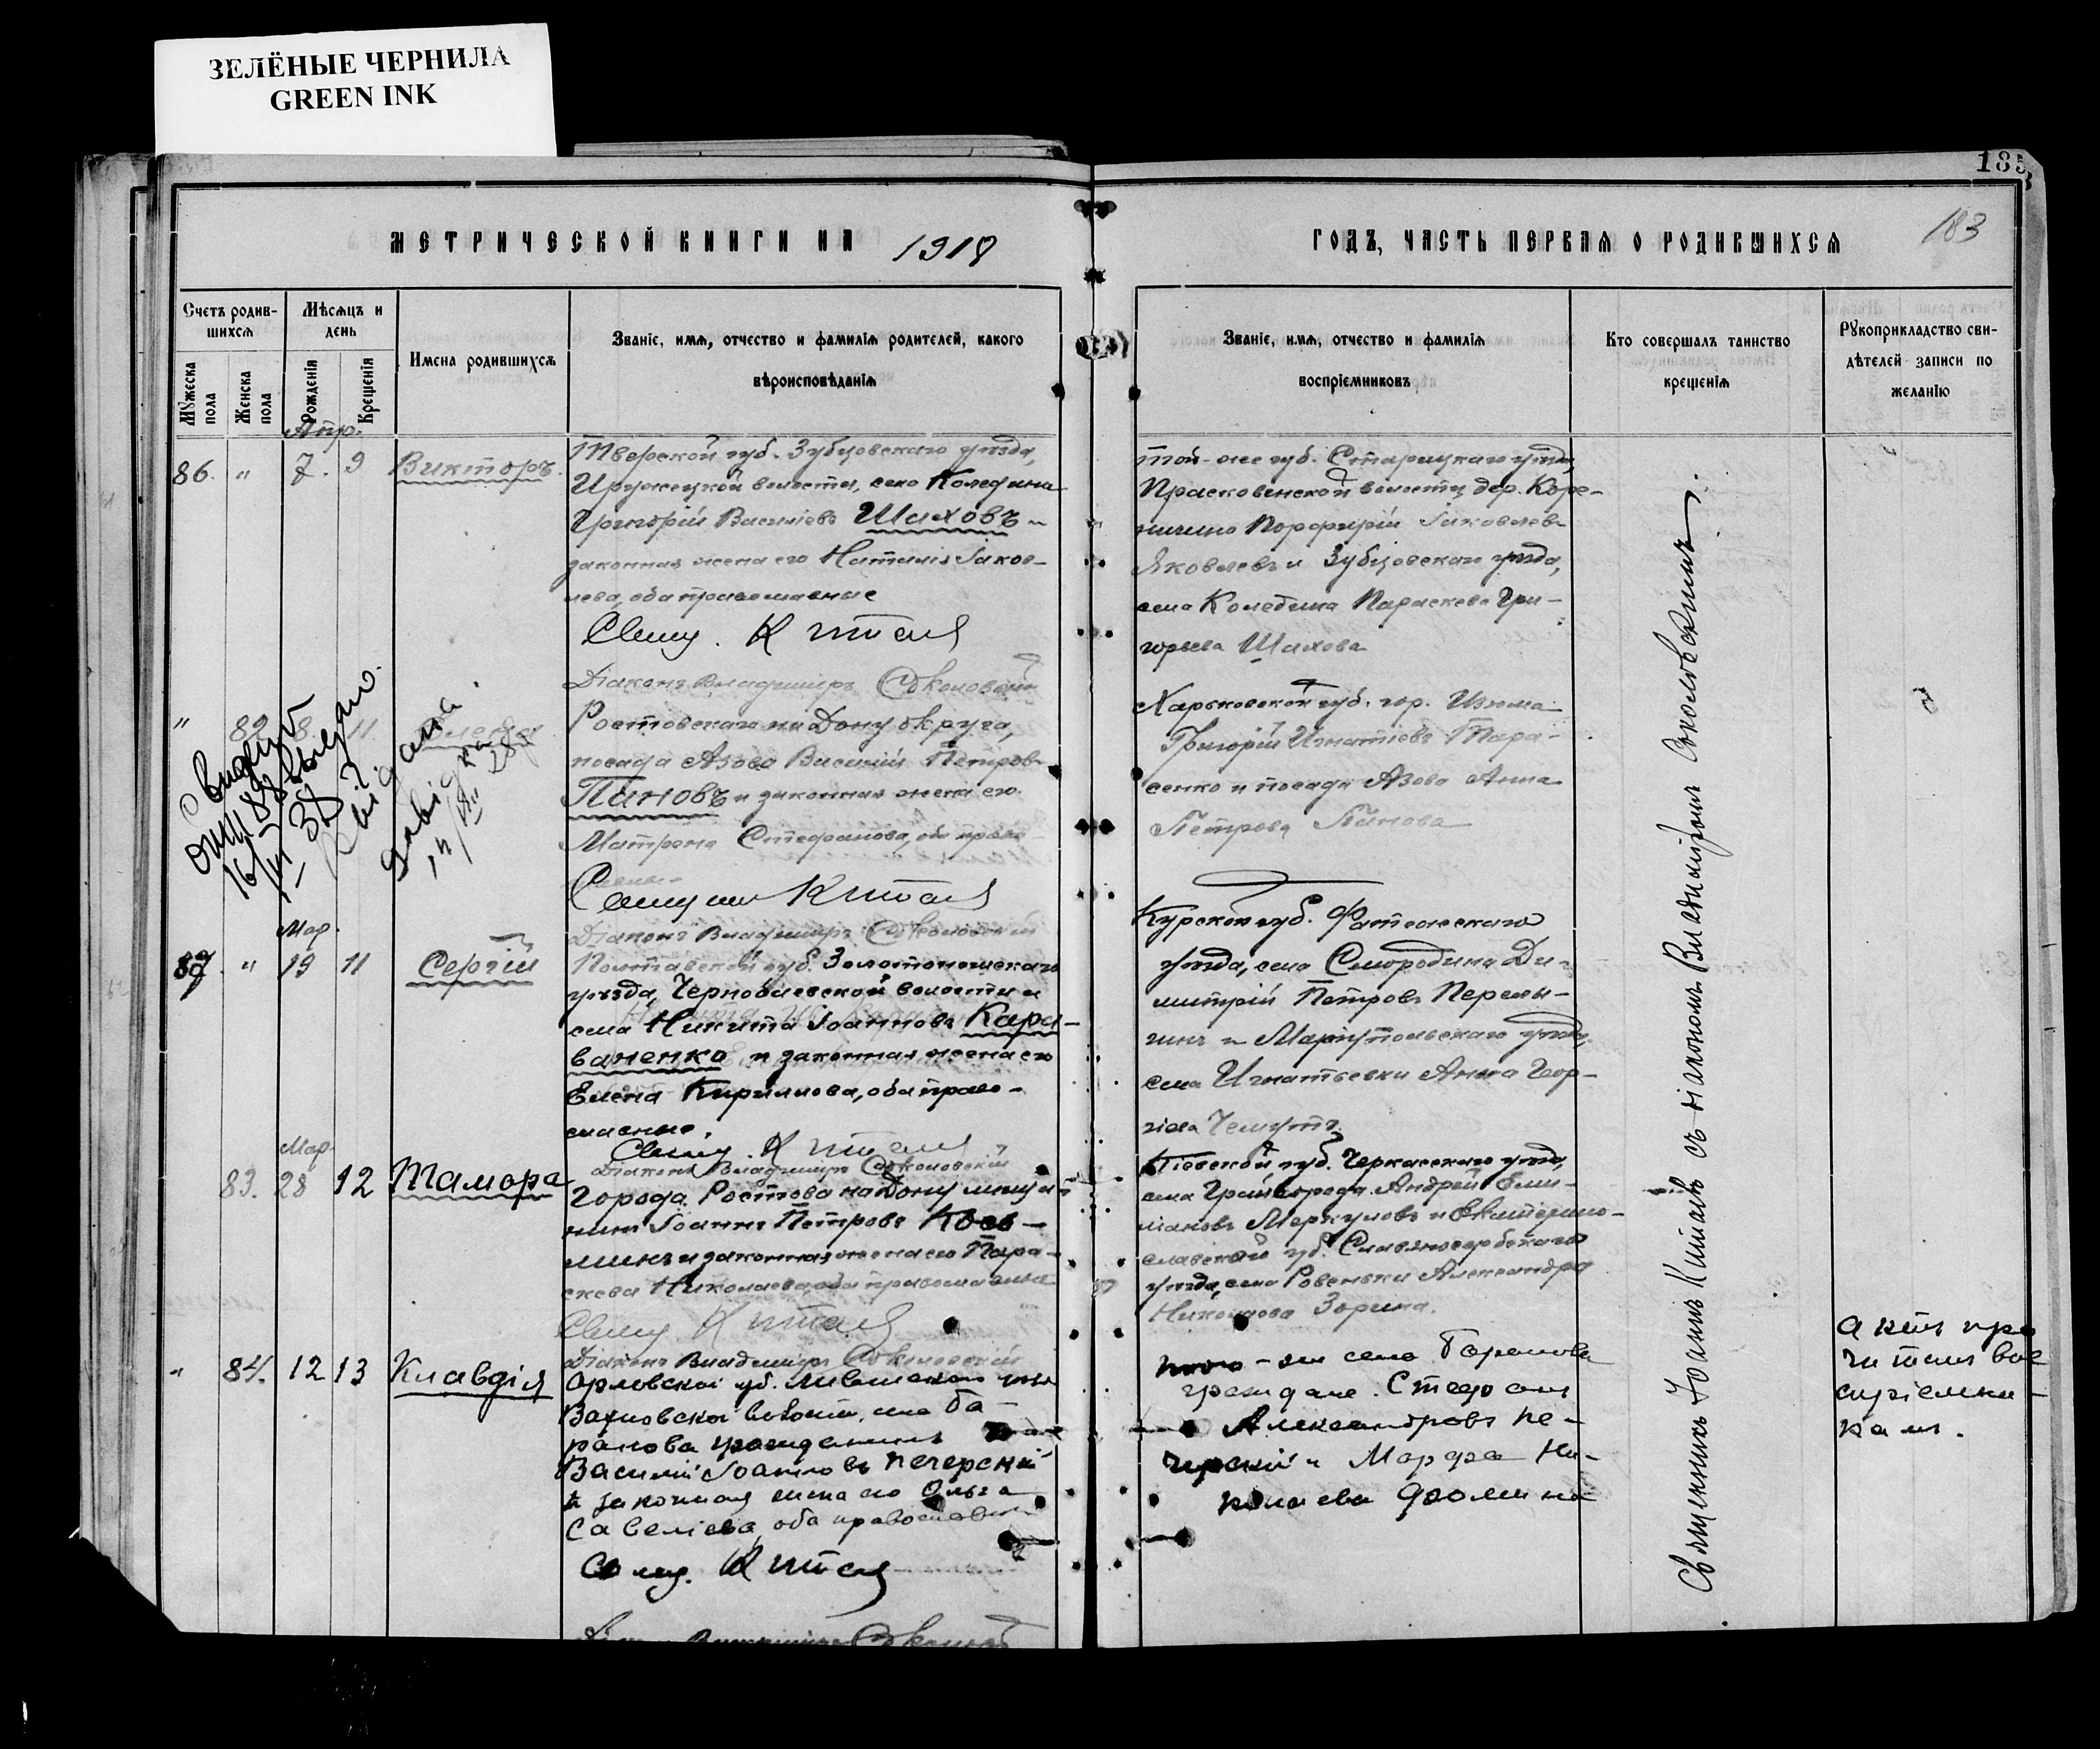 ЗЕЛЁНЫЕ ЧЕРНИЛА
GREEN INK
185
183
МЕТРИЧЕСКОЙ КНИГИ НА 1918
ГОДЪ, ЧАСТЬ ПЕРВАЯ О РОДИВШИХСЯ
Счетъ родив-
шихся
Мѣсяцъ и
день
Мужеска пола
Женска пола
Рожденія
Крещенія
Имена родившихся
Званіе, имя, отчество и фамилія родителей, какого
вѣроисповѣданія
Званіе, имя, отчество и фамилія
воспріемниковъ
Кто совершалъ таинство
крещенія
Рукоприкладство сви-
дѣтелей записи по
желанію
Апр.
86. " 7. 9 Викторъ.
Тверской губ. Зубцовскаго уѣзда,
волости, село Коледина
Григорій Васильевъ Шаховъ и
законная жена его Наталія Іаков-
лева, оба православные
Свящ. Китаевъ
Діаконъ Владимиръ Соколовскій
той-же губ. Старицкаго уѣзда,
Прасковенской волости, дер. Коре-
Порфирій Іаковлевъ
Яковлевъ и Зубцовскаго уѣзда,
села Коледина Параскева Гри-
горьева Шахова
" 82. 8. 11
Ростовскаго на Дону округа,
посада Азова Василій Петровъ
Пановъ и законная жена его
Матрона Стефанова, оба право-
славные
Священникъ Китаевъ
Діаконъ Владимиръ Соколовскій
Харьковской губ. гор. Изюма
Григорій Игнатіевъ Тара-
сенко и посада Азова Анна
Петрова Панова
Мар.
87. " 19 11 Сергій
Полтавской губ. Золотоношскаго
уѣзда, Чернобаевской волости и
села Никита Іоанновъ Кара-
ваненко и законная жена его
Елена Кириллова, оба право-
славные.
Свящ. Китаевъ
Діаконъ Владимиръ Соколовскій
Курской губ. Фатежскаго
уѣзда, села Смородина Ди-
митрій Петровъ Перелы-
гинъ и Маріупольскаго уѣзда,
села Игнатьевки Анна Геор-
гіева
Мар.
83. 28 12 Тамара
города Ростова на Дону мѣща-
нинъ Іоаннъ Петровъ Кось-
минъ и законная жена его Пара-
скева Николаева, оба православные
Свящ. Китаевъ
Діаконъ Владимиръ Соколовскій
Кіевской губ. Черкасскаго уѣзда,
села Андрей Еми-
ліановъ Меркуловъ и Екатерино-
славской губ. Славяносербскаго
уѣзда, села Ровеньки Александра
Николаева Зорина.
" 84. 12 13 Клавдія
Орловской губ. Ливенскаго уѣз.
волости, села Ба-
ранова гражданинъ
Василій Іоанновъ Печерскій
и законная жена его Ольга
Савеліева, оба православные
Свящ. Китаевъ
того-же села Баранова
граждане Стефанъ
Александровъ Пе-
черскій и Марфа Ни-
колаева Фомина
Священникъ Іоаннъ Китаевъ съ діакономъ Владимиромъ Соколовскимъ.
Актъ про
читанъ вос
пріемни-
камъ.